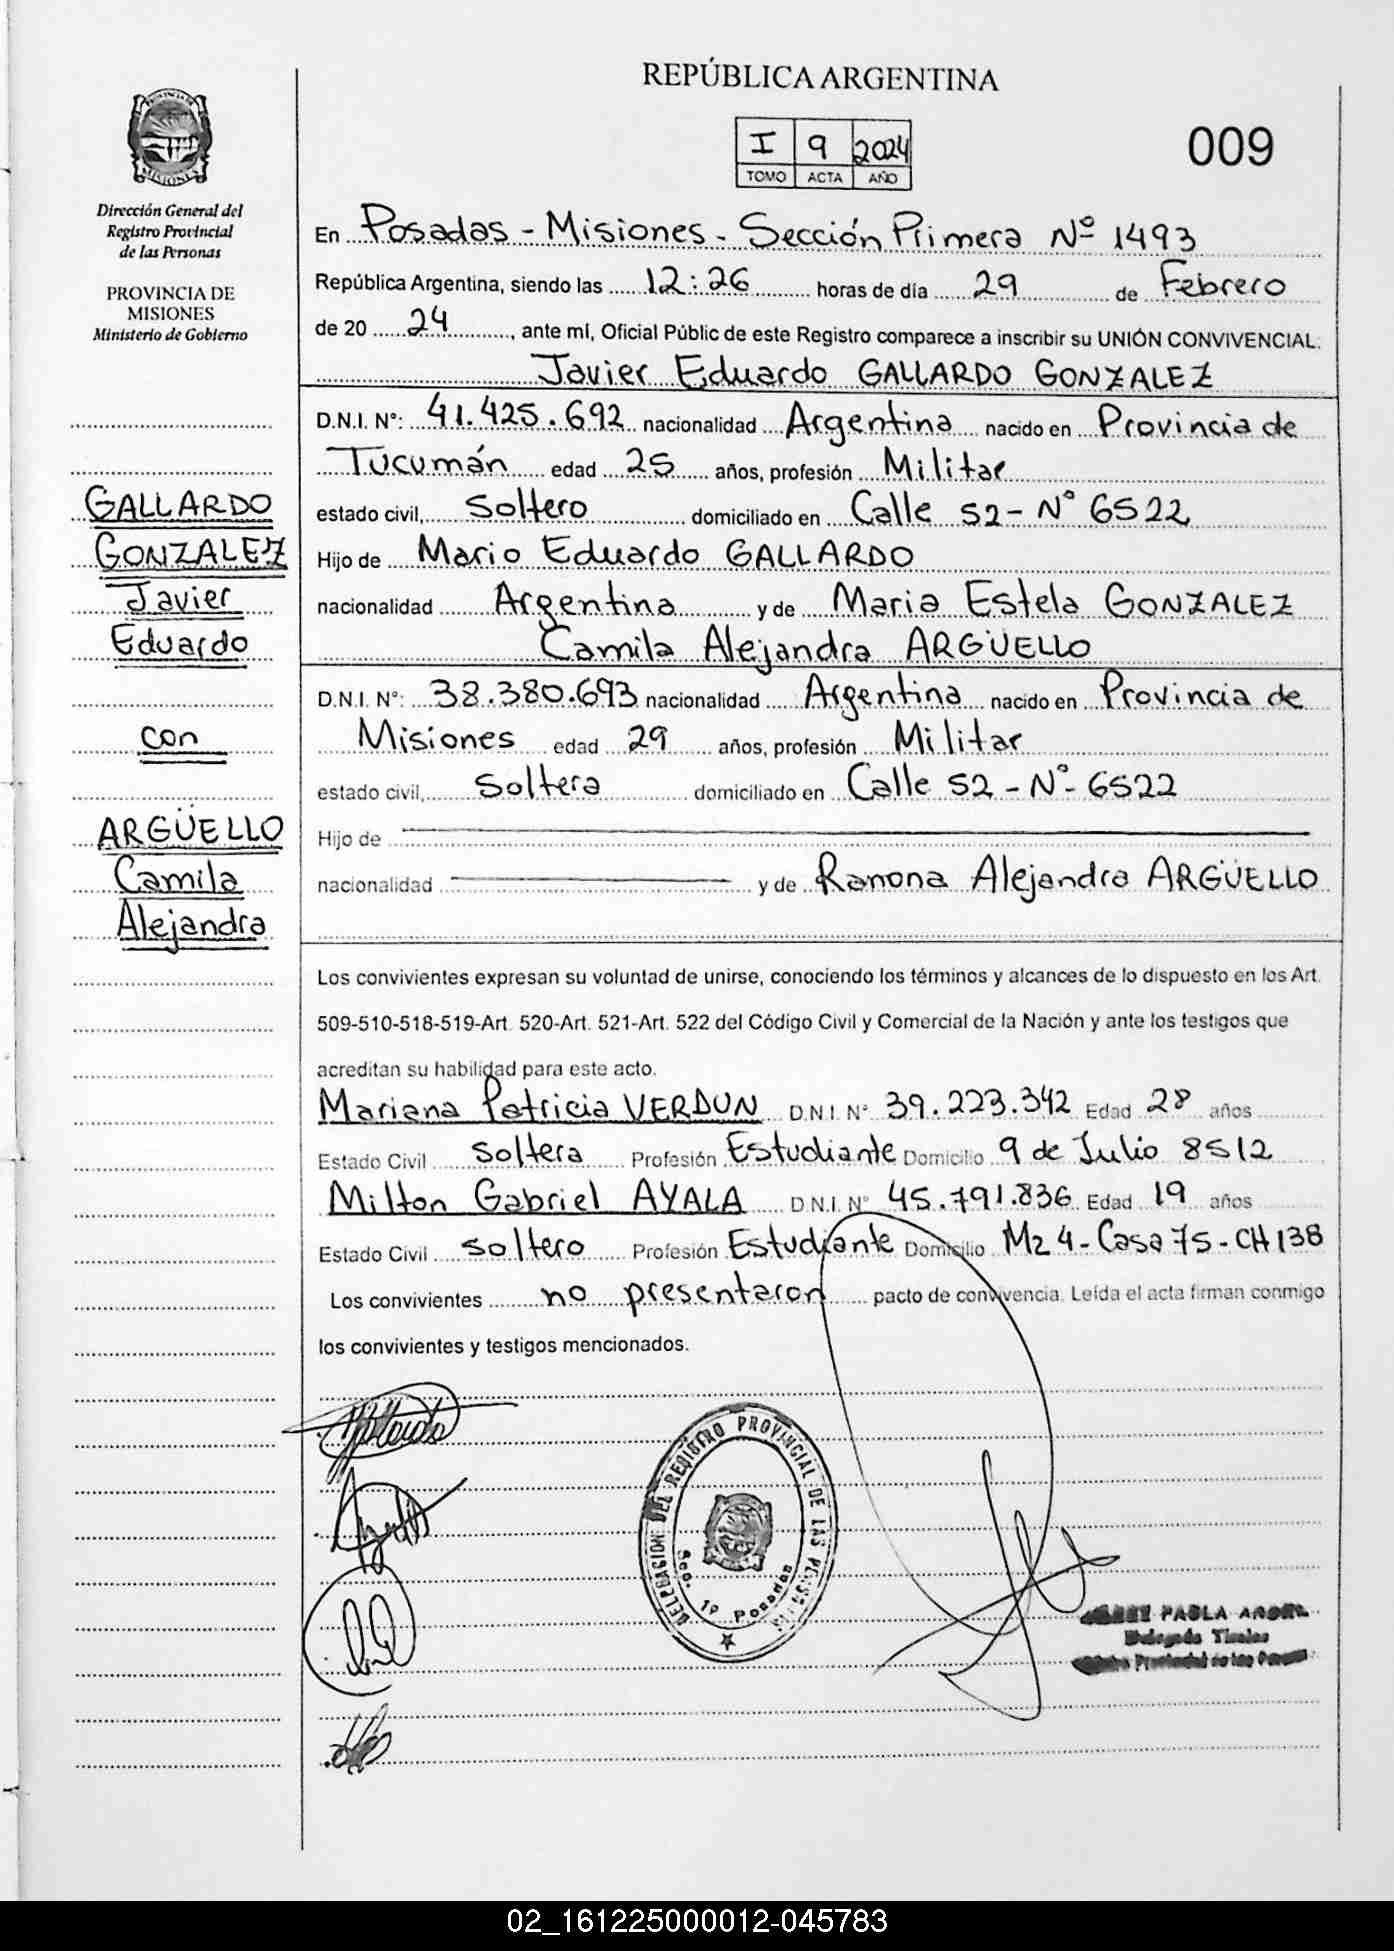 REPÚBLICA ARGENTINA
I 9 2024
TOMO ACTA AÑO
009
PROVINCIA DE MISIONES
Dirección General del
Registro Provincial
de las Personas
PROVINCIA DE
MISIONES
Ministerio de Gobierno
En Posadas - Misiones - Sección Primera Nº 1493
República Argentina, siendo las 12:26 horas de día 29 de Febrero
de 20 24, ante mí, Oficial Públic de este Registro comparece a inscribir su UNIÓN CONVIVENCIAL:
Javier Eduardo GALLARDO GONZALEZ
D.N.I. N°: 41.425.692 nacionalidad Argentina nacido en Provincia de
Tucumán edad 25 años, profesión Militar
estado civil, Soltero domiciliado en Calle 52 - N° 6522
Hijo de Mario Eduardo GALLARDO
nacionalidad Argentina y de Maria Estela GONZALEZ
Camila Alejandra ARGÜELLO
D.N.I. N°: 38.380.693 nacionalidad Argentina nacido en Provincia de
Misiones edad 29 años, profesión Militar
estado civil, Soltera domiciliado en Calle 52 - N° - 6522
Hijo de
nacionalidad y de Ramona Alejandra ARGÜELLO
GALLARDO
GONZALEZ
Javier
Eduardo
con
ARGÜELLO
Camila
Alejandra
Los convivientes expresan su voluntad de unirse, conociendo los términos y alcances de lo dispuesto en los Art.
509-510-518-519-Art. 520-Art. 521-Art. 522 del Código Civil y Comercial de la Nación y ante los testigos que
acreditan su habilidad para este acto.
Mariana Patricia VERDUN D.N.I. N° 39.223.342 Edad 28 años
Estado Civil Soltera Profesión Estudiante Domicilio 9 de Julio 8512
Milton Gabriel AYALA D.N.I. N° 45.791.836 Edad 19 años
Estado Civil Soltero Profesión Estudiante Domicilio Mz 4 - Casa 75 - CH 138
Los convivientes no presentaron pacto de convivencia. Leída el acta firman conmigo
los convivientes y testigos mencionados.
DELEGACION DEL REGISTRO PROVINCIAL DE LAS PERSONAS
Sec. 1º Posadas
PAOLA
Delegada Titular
Provincial de las
02_161225000012-045783